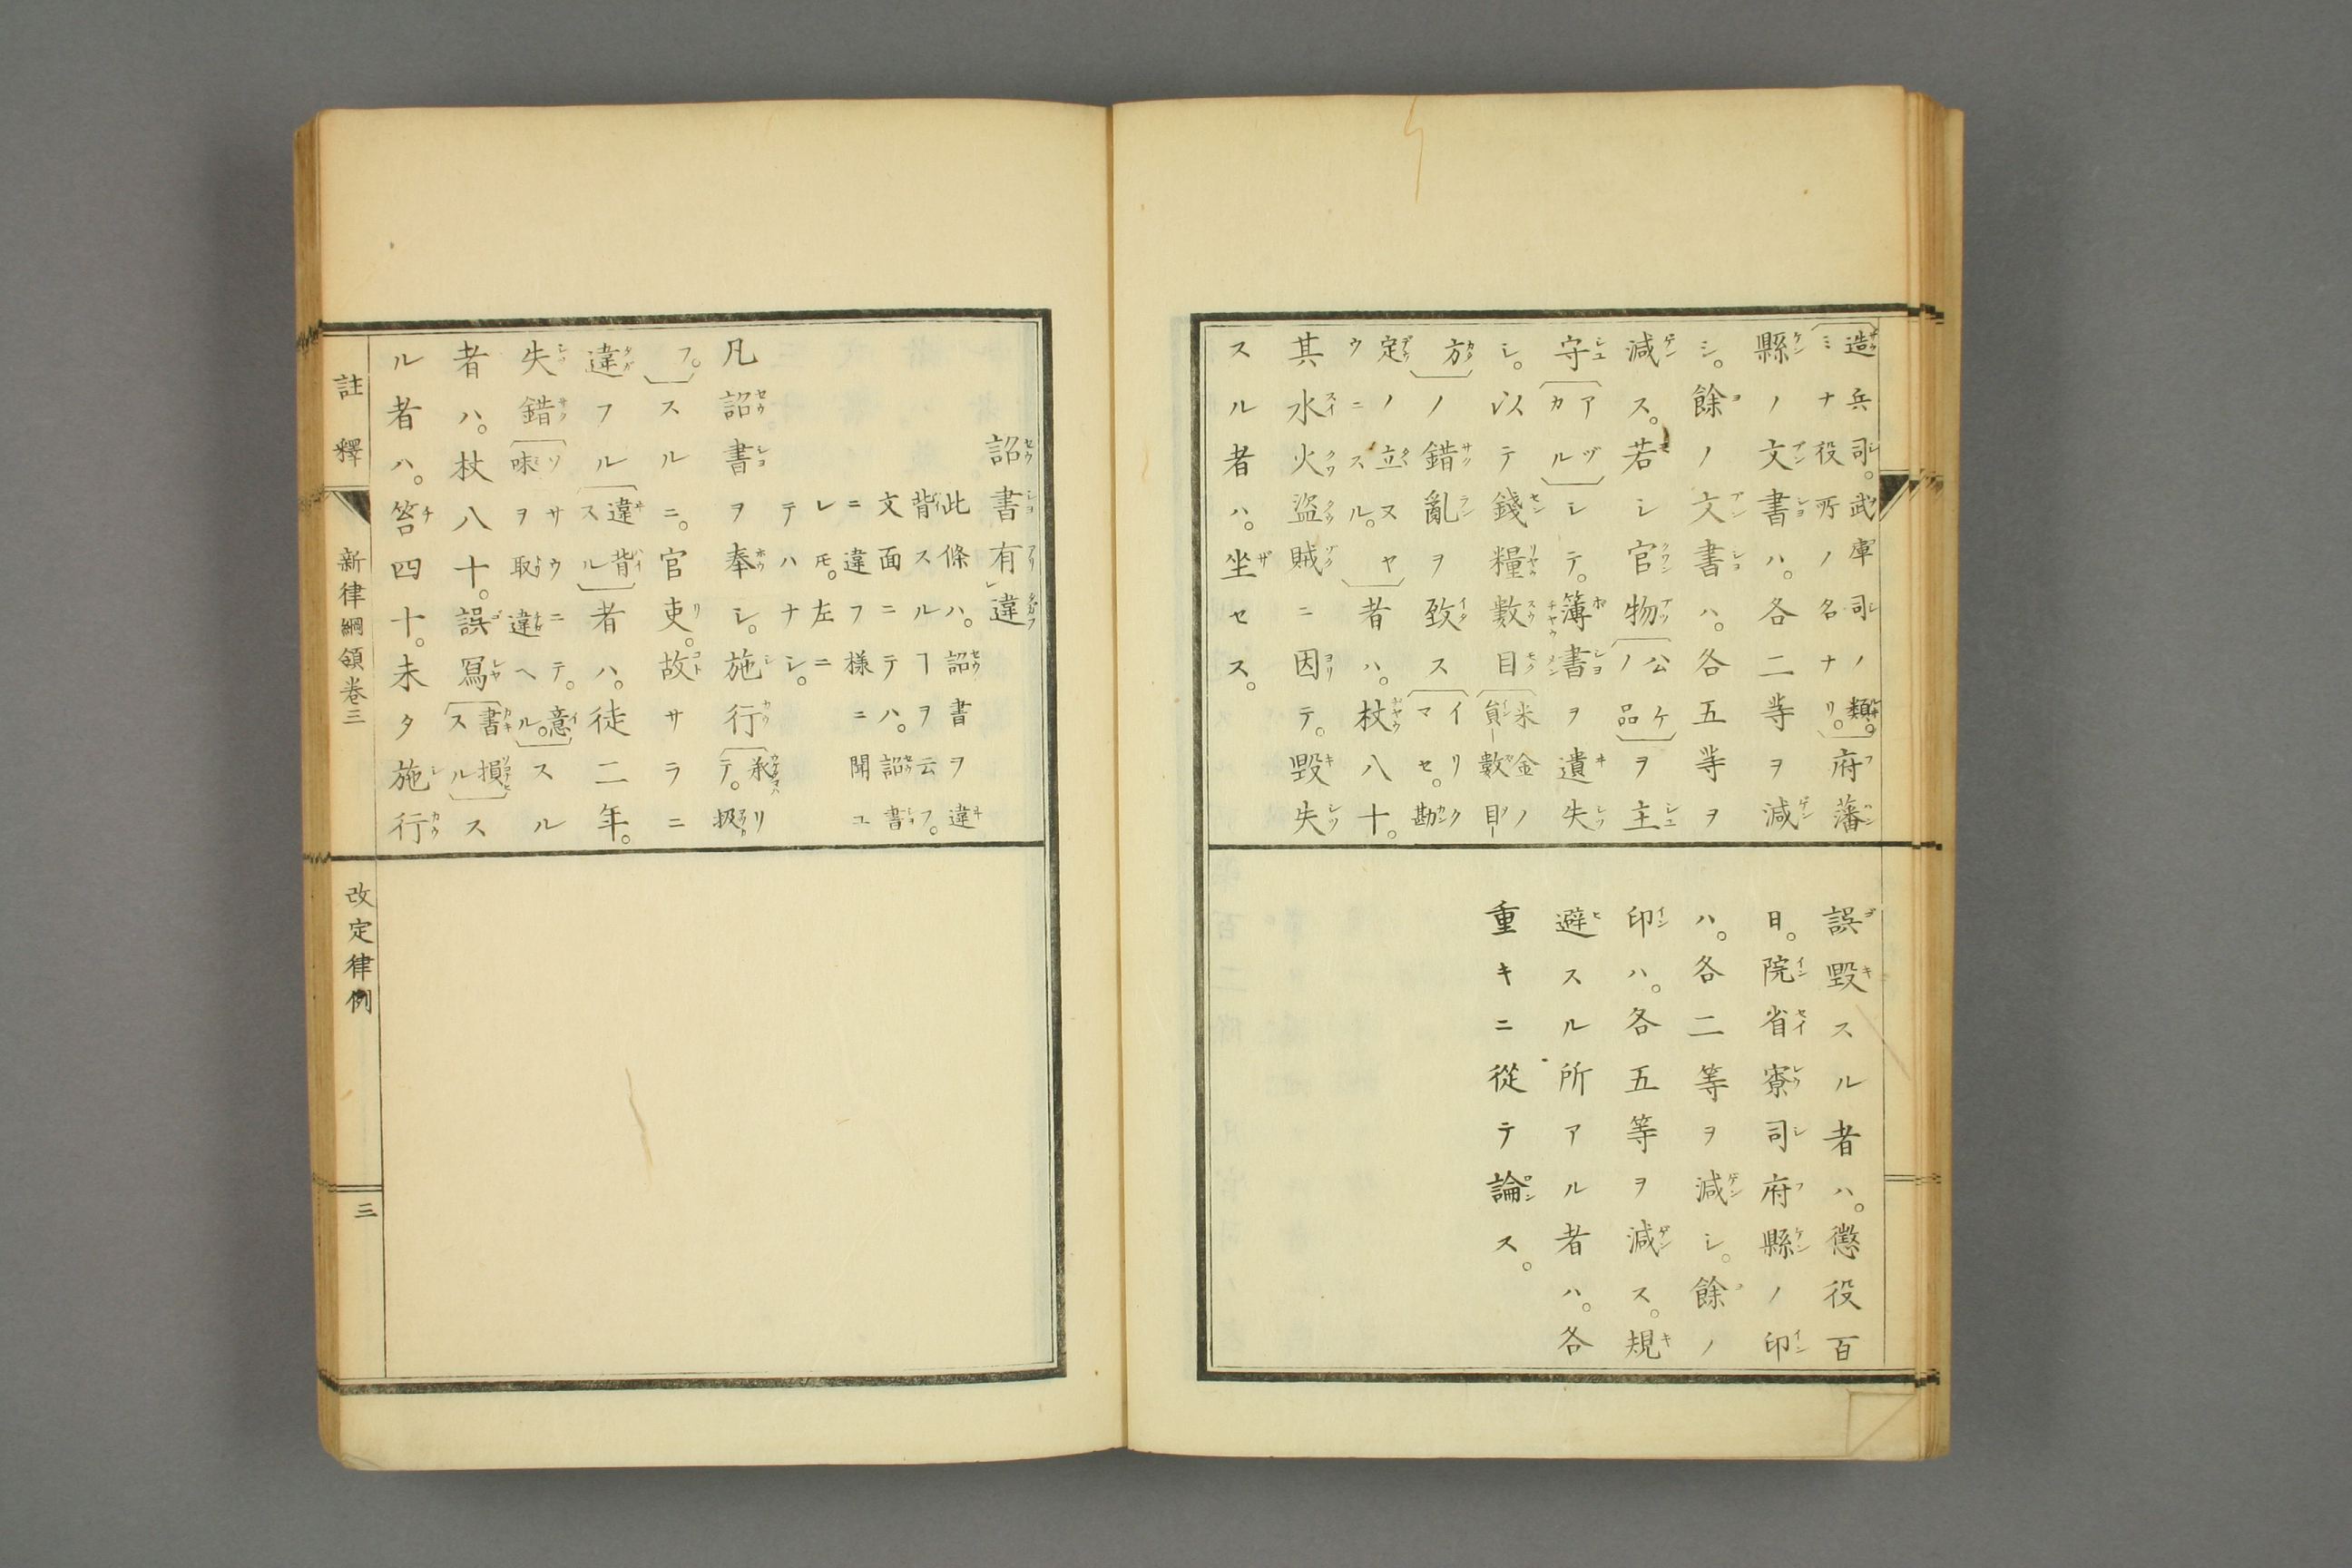 造兵司。武庫司ノ類。府藩
ミナ役所ノ名ナリ。
縣ノ文書ハ。各二等ヲ減
シ。餘ノ文書ハ。各五等ヲ
減ス。若シ官物公ケノ品ヲ主
守アヅカルシテ。簿書ヲ遺失
シ。以テ錢糧數目米金ノ員數目
方ノ錯亂ヲ致スイリクマセ。勘
定ノ立ヌヤウニスル。者ハ。杖八十。
其水火盜賊ニ因テ。毀失
スル者ハ。坐セス。
誤毀スル者ハ。懲役百
日。院省寮司府縣ノ印
ハ。各二等ヲ減シ。餘ノ
印ハ。各五等ヲ減ス。規
避スル所アル者ハ。各
重キニ從テ論ス。
詔書有違
此條ハ。詔書ヲ違
背スルヿヲ云フ。
文面ニテハ。詔書
ニ違フ様ニ聞ユ
レ𪜈。左ニ
テハナシ。
凡詔書ヲ奉シ。施行承リテ。扱
フ。スルニ。官吏。故サラニ
違フル違背スル者ハ。徒二年。
失錯ソサウニテ。意味ヲ取違ヘル。スル
者ハ。杖八十。誤寫書損スルス
ル者ハ。笞四十。未タ施行
註釋
新律綱領卷三
改定律例
三